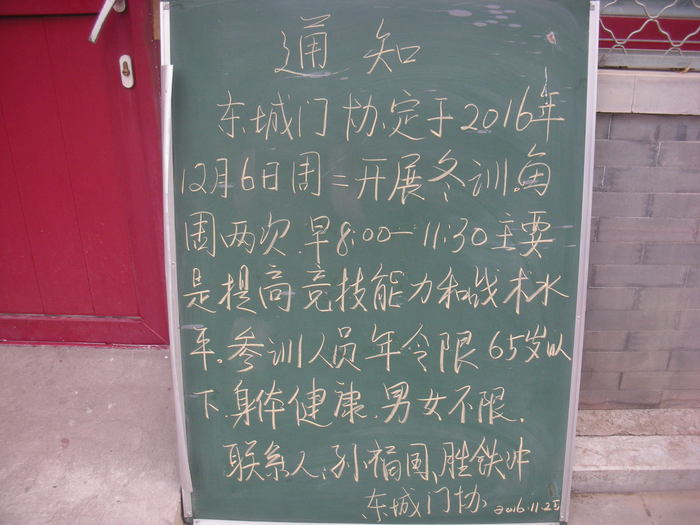 通知
东城门协.定于2016年
12月6日周二开展冬训.每
周两次.早8:00—11:30主要
是提高竞技能力和战术水
平.参训人员年令限65岁以
下.身体健康.男女不限.
联系人:孙福国、胜铁冲
东城门协 2016.11.25